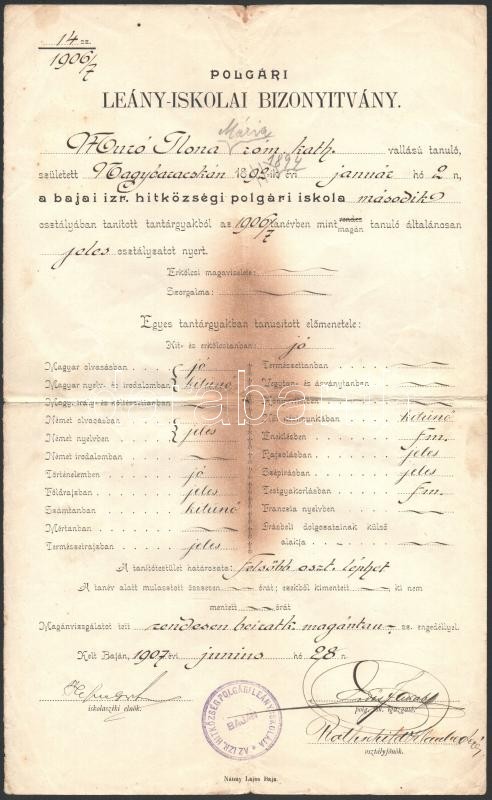 14 sz.
1906/7
POLGÁRI
LEÁNY-ISKOLAI BIZONYITVÁNY.
Mária
Muzó Ilona róm. kath. vallású tanuló,
1894
született Nagybaracskán 1892-ik évi január hó 2 n,
a bajai izr. hitközségi polgári iskola második
osztályában tanított tantárgyakból az 1906/7 tanévben mint rendes magán tanuló általánosan
jeles osztályzatot nyert.
Erkölcsi magaviselete:
Szorgalma:
Egyes tantárgyakban tanusított előmenetele:
Hit- és erkölcstanban: jó
Magyar olvasásban jó
Magyar nyelv- és irodalomban kitünő
Magy. irály- és költészettanban
Német olvasásban
Német nyelvben jeles
Német irodalomban
Történelemben jó
Földrajzban jeles
Számtanban kitünő
Mértanban
Természetrajzban jeles
Természettanban
Vegytan- és ásványtanban
kitünő
Éneklésben fm.
Rajzolásban jeles
Szépírásban jeles
Testgyakorlásban fm.
Francia nyelvben
Írásbeli dolgozatainak külső
alakja
A tanítótestület határozata: felsőbb oszt. léphet
A tanév alatt mulasztott összesen órát; ezekből kimentett ki nem
mentett órát
Magánvizsgálatot tett rendesen beiratk. magántan. sz. engedéllyel.
Kelt Baján, 1907 évi junius hó 28 n.
iskolaszéki elnök.
AZ IZR. HITKÖZSÉG POLGÁRI LEÁNYISKOLÁJA
BAJÁN
polg. isk. igazgató.
osztályfőnök.
Nánay Lajos Baja.